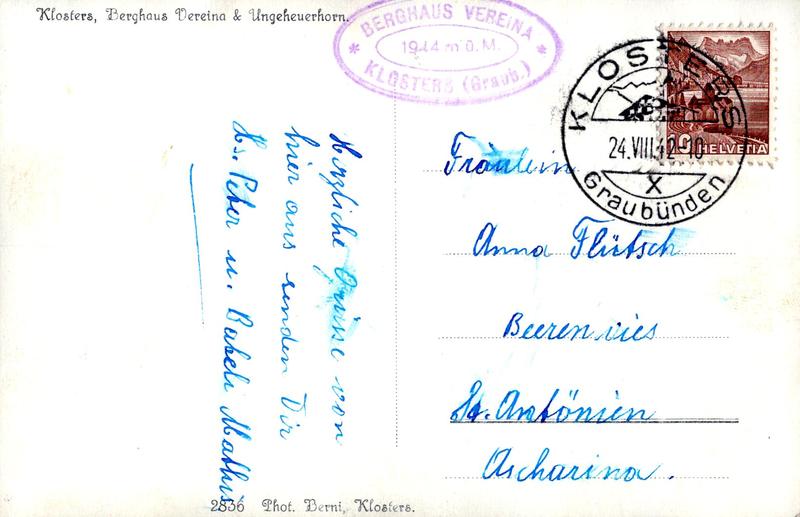 Klosters, Berghaus Vereina & Ungeheuerhorn.
BERGHAUS VEREINA
1944 m ü. M.
* KLOSTERS (Graub.) *
KLOSTERS
24.VIII.42-10
X
Graubünden
HELVETIA
Herzliche Grüsse von
hier aus senden Dir
Hs. Peter u. Babeli Mathis
Fräulein
Anna Flütsch
Beerenvies
St. Antönien
Ascharina.
2836 Phot. Berni, Klosters.